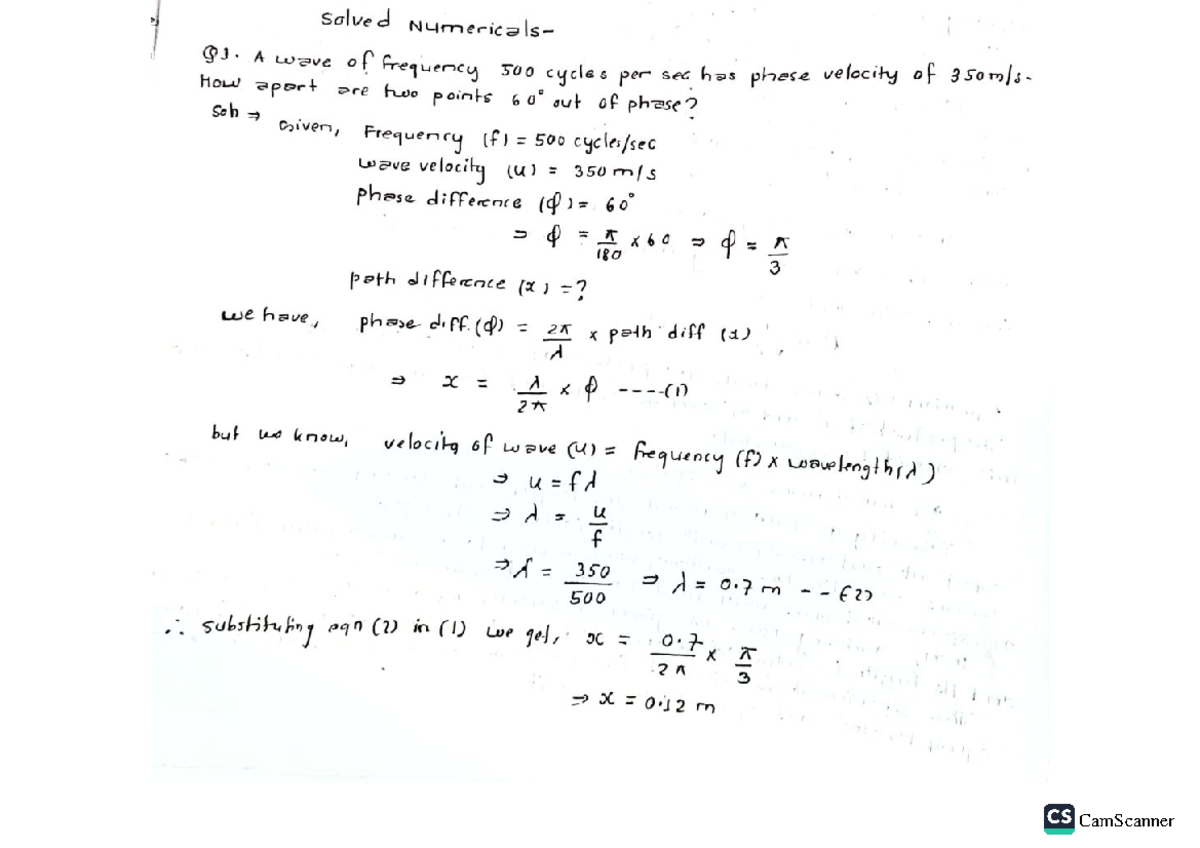 Solved Numericals-
Q1. A wave of frequency 500 cycles per sec has phase velocity of 350 m/s.
How apart are two points 60° out of phase?
Soln ⇒ Given, Frequency (f) = 500 cycles/sec
wave velocity (u) = 350 m/s
phase difference (φ) = 60°
⇒ φ = π/180 × 60 ⇒ φ = π/3
path difference (x) = ?
we have, phase diff. (φ) = 2π/λ × path diff (x)
⇒ x = λ/2π × φ ----(1)
but we know, velocity of wave (u) = frequency (f) × wavelength (λ)
⇒ u = fλ
⇒ λ = u/f
⇒ λ = 350/500 ⇒ λ = 0.7 m --(2)
∴ substituting eqn (2) in (1) we get, x = 0.7/2π × π/3
⇒ x = 0.12 m
CS CamScanner